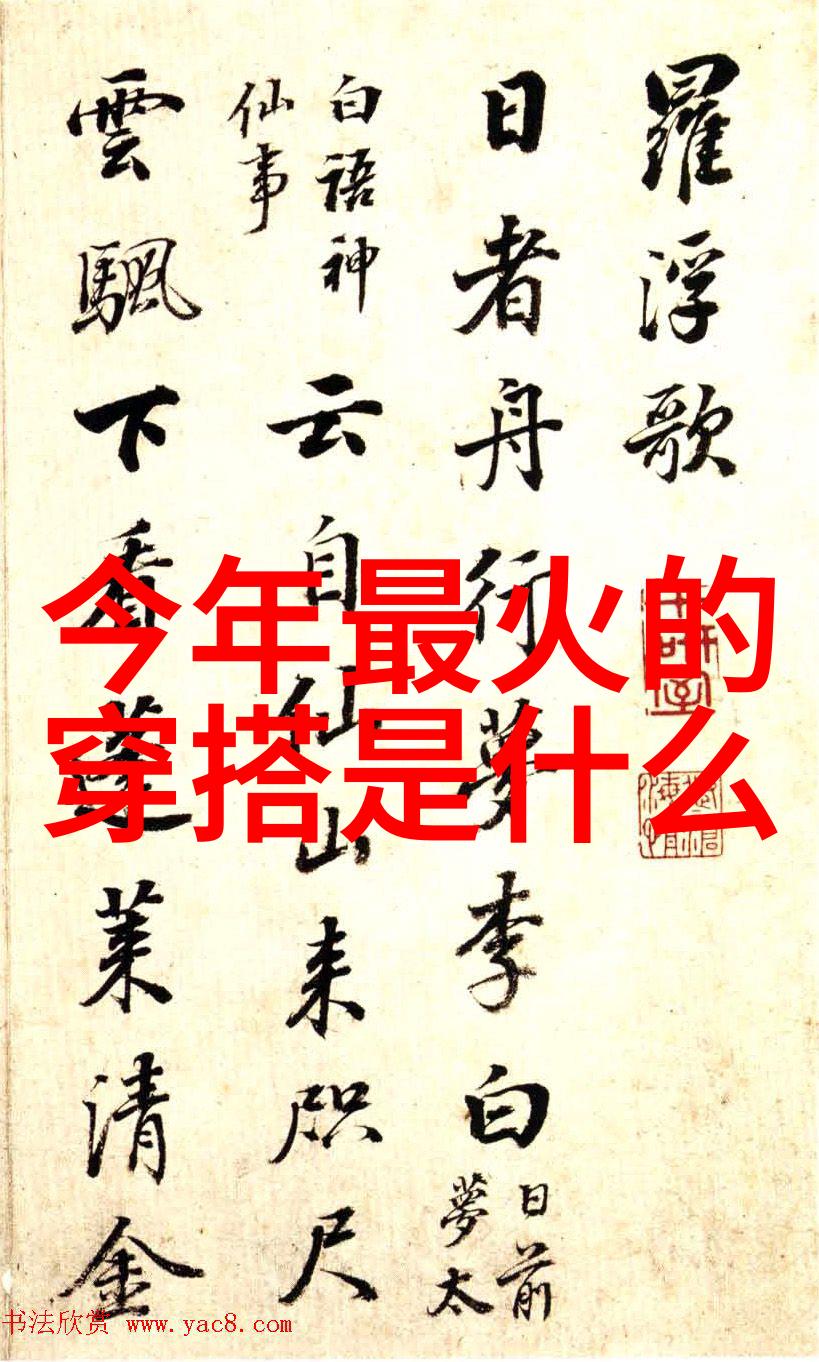 羅浮歌
日者舟行夢李白
日前
夢太
白語神
仙事
云自仙山来咫尺
雲颿下看蓬莱清金
今年最火的
穿搭是什么
书法欣赏 www.yac8.com